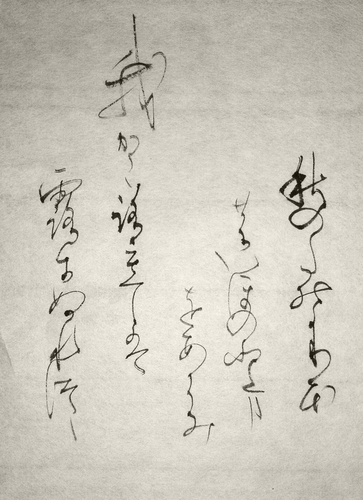 秋のたのかりほ
のいほのとま
をあらみ
我かころもては
露にぬれつゝ